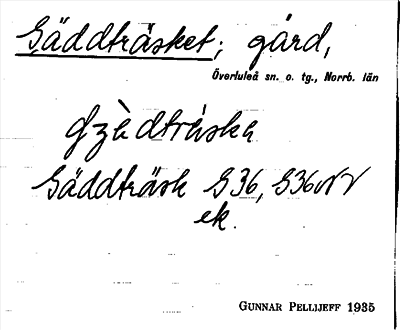 Gäddträsket; gård,
Överluleå sn. o. tg., Norrb. län
Gäddträsk G36, G36NV
ek.
GUNNAR PELLIJEFF 1935